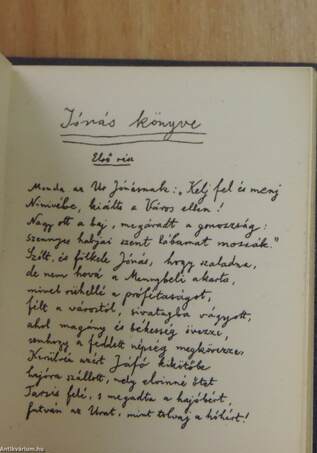 Jónás könyve
Első rész
Monda az Ur Jónásnak: „Kelj fel és menj
Ninivébe, kiálts a Város ellen!
Nagy ott a baj, megáradt a gonoszság:
szennyes habjai szent lábamat mossák."
Szólt, és fölkele Jónás, hogy szaladna,
de nem hová a Mennybéli akarta,
mivel rühellé a prófétaságot,
félt a várostól, sivatagba vágyott,
ahol magány és békesség övezze,
semhogy a feddett népség megkövezze.
Kerülvén azért Jáfó kikötőbe
hajóra szállott, mely elvinné őtet
Tarsis felé, s megadta a hajóbért,
futván az Urat, mint tolvaj a hóhért!
Antikvárium.hu